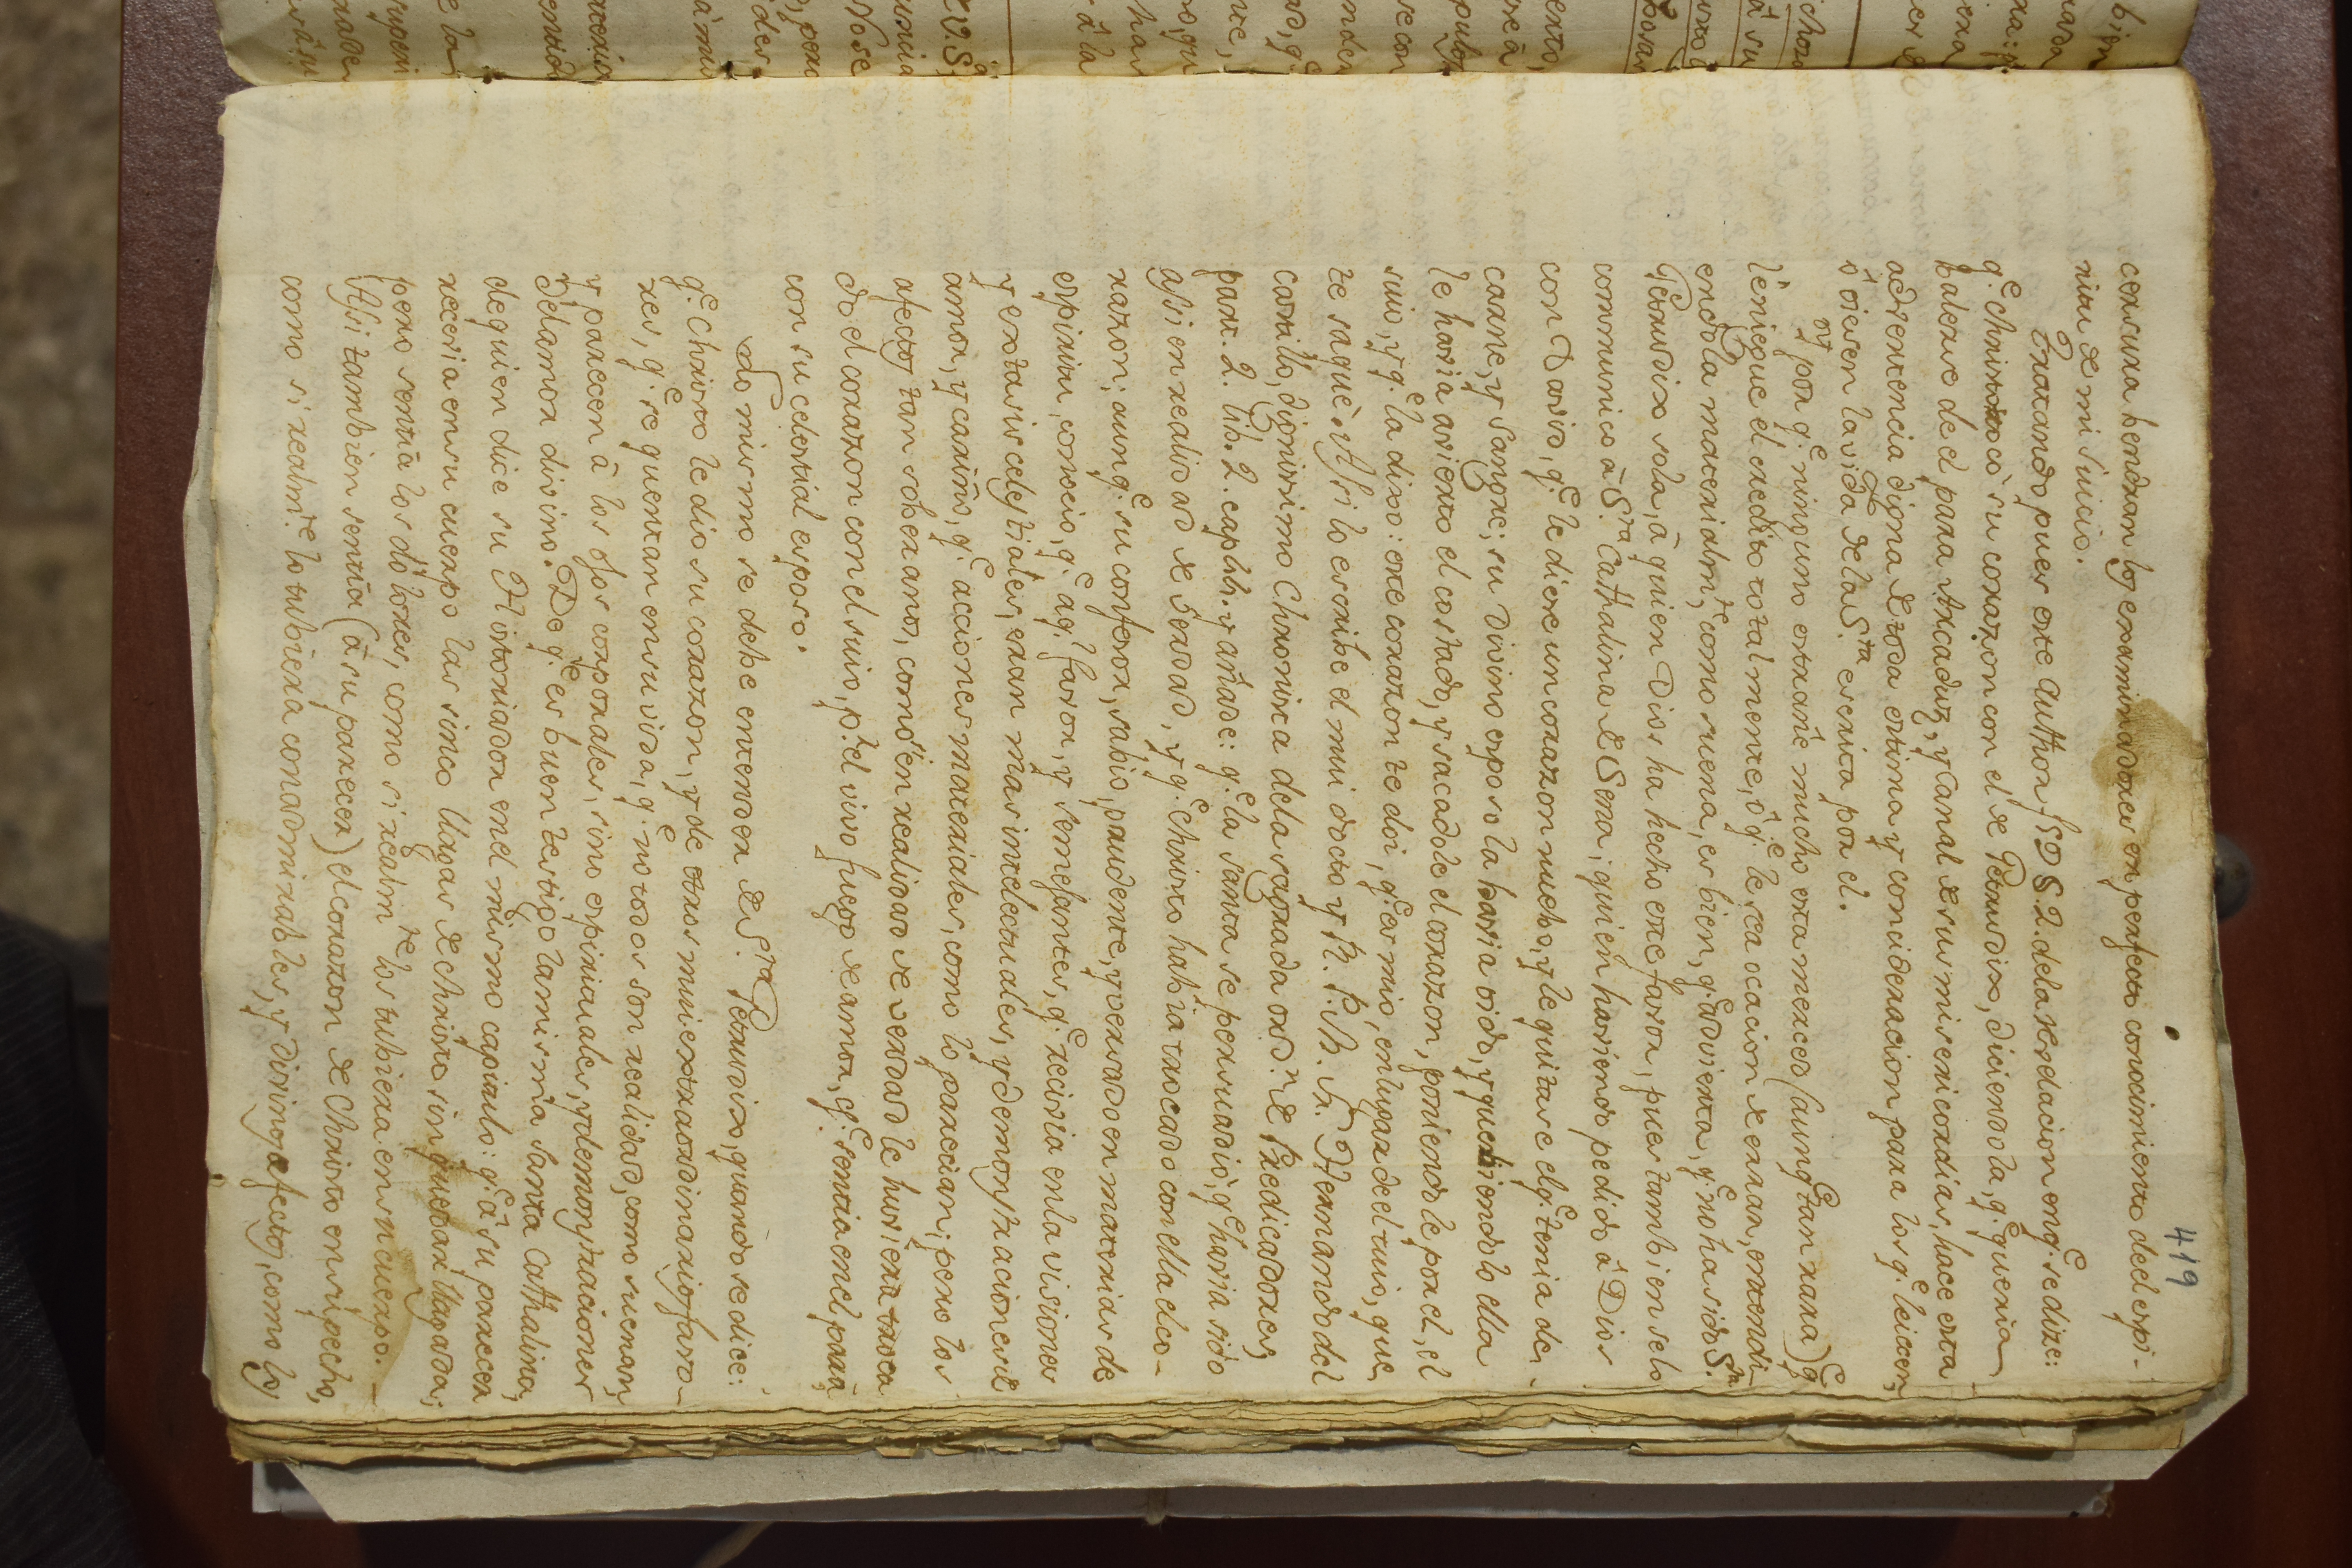 419
censura tendran los examinadores en perfecto conocimiento de el espi-
ritu de mi Juicio.
Tratando pues este Author §5 D §. 2. de la revelacion en q.e se dize:
q.e Christo trocò su corazon con el de Getrudix, diciendola, q.e queria
valerse de el para Arcaduz, y Canal de sus misericordias, hace esta
advertencia digna de toda estima y consideracion para los q.e leiesen,
ò oiesen la vida de la S.ta escrita por el.
Y por q.e ninguno estrañe mucho esta merced (aunq.e tan rara) q.e
le niegue el credito totalmente, ô q.e le sea ocacion de errar, entendi-
endola materialm.te como suena, es bien, q.e advierta, q.e no ha sido S.ta
Getrudix sola, â quien Dios ha hecho este favor, pues tambien se lo
communicò â S.ta Cathalina de Sena; quien haviendo pedido â Dios
con David, q.e le diese un corazon nuebo, y le quitase el q.e tenia de
carne, y sangre; su Divino esposo la havia oido, y queriendolo ella
le havia avierto el costado, y sacadole el corazon, poniendole por el, el
suio, y q.e la dixo: este corazon te doi, q.e es mio, en lugar de el tuio, que
te saquè. Assi lo escribe el mui docto y R. P. M. Fr. Hernando del
Castillo, dignissimo Chronista de la sagrada ord.n de Predicadores,
part. 2. lib. 2. capit. y añade: q.e la santa se persuadiò, q.e havia sido
assi en realidad de verdad, y q.e Christo habia trocado con ella el co-
razon; aunq.e su confesor, sabio, prudente, y versado en materias de
espiritu, conocio, q.e aq.l favor, y semejantes, q.e recivia en la visiones
y extasis celestiales, eran mas intelectuales, y demonstraciones de
amor, y cariño, q.e acciones materiales, como lo parecian; pero los
afectos tan soberanos, como si en realidad de verdad le huviera troca-
do el corazon con el suio, p.r el vivo fuego de amor, q.e sentia en el para
con su celestial esposo.
Lo mismo se debe entender de S.ta Getrudix, quando se dice:
q.e Christo le dio su corazon, y de otros mui extraordinarios favo-
res, q.e se quentan en su vida, q.e no todos son realidad, como suenan,
y parecen â los ojos corporales, sino espirituales, y demonstraciones
del amor divino. De q.e es buen testigo la misma Santa Cathalina,
de quien dice su Historiador en el mismo capitulo: q.e â su parecer
recevia en su cuerpo las sinco llagas de Christo, sin quedar llagada;
pero sentia los dolores, como si realm.te los tubiera en su cuerpo. -
Assi tambien sentia (â su parecer) el corazon de Christo en su pecho,
como si realm.te lo tubiera con admirables, y Divinos afectos, como los